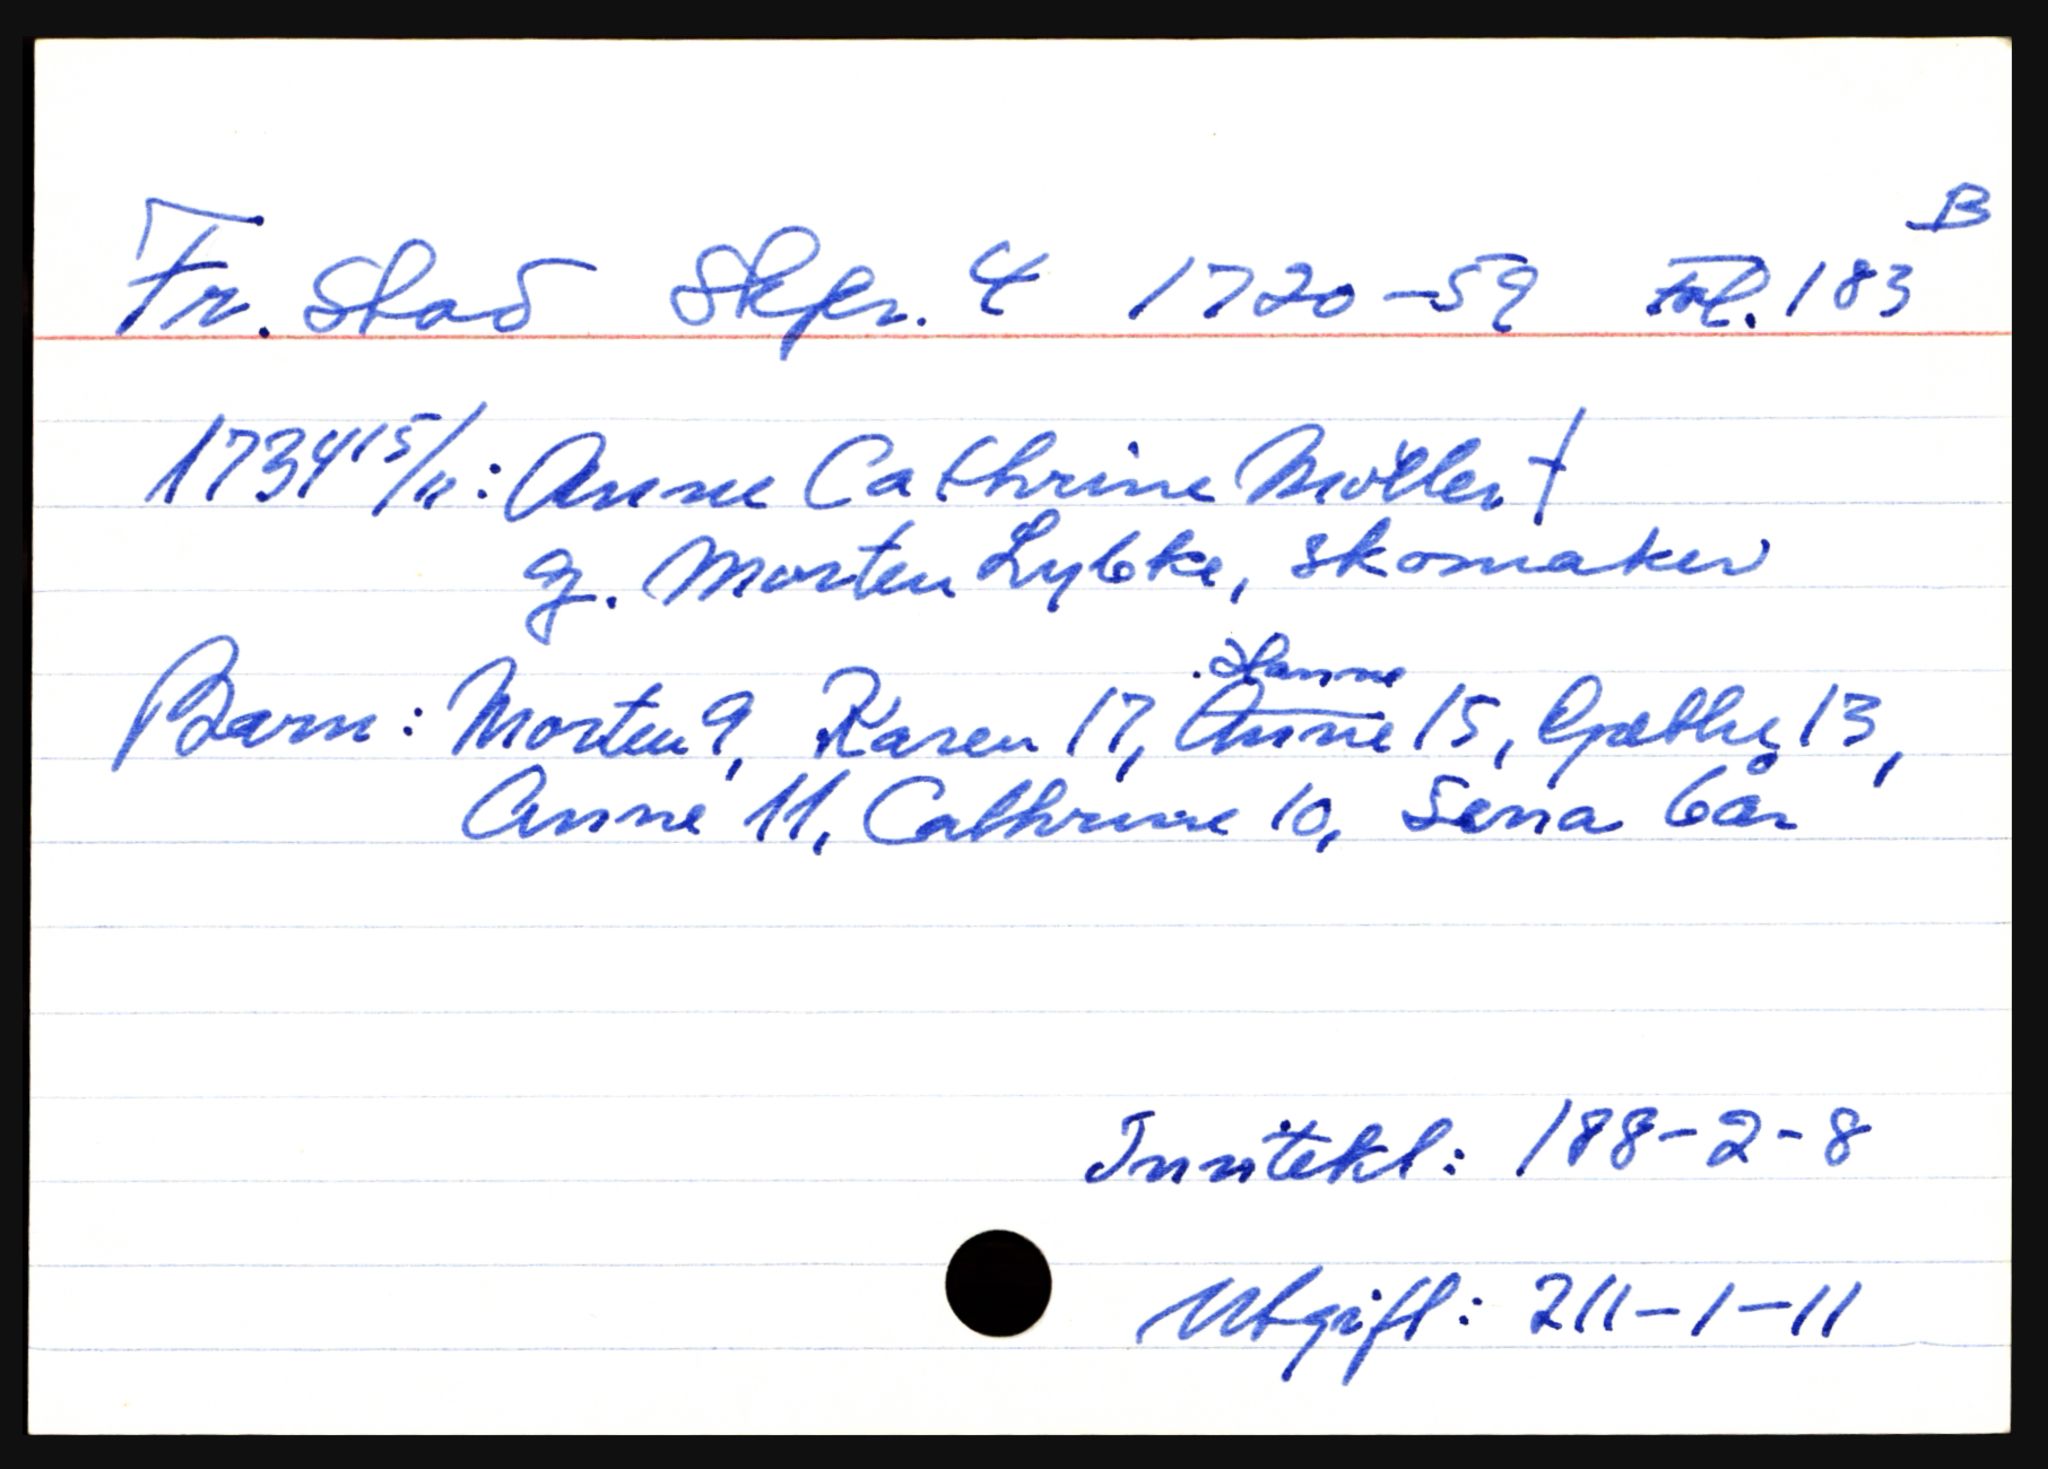 Fr. stad Skpr. 4 1720-59 Fol. 183 B
1734 15/11: Anne Cathrine Möller †
g. Morten Lybke, skomaker
Hanne
Barn: Morten 9, Karen 17, Anne 15, 13,
Anne 11, Cathrine 10, Sena 6 år
Inntekt: 188-2-8
Utgift: 211-1-11